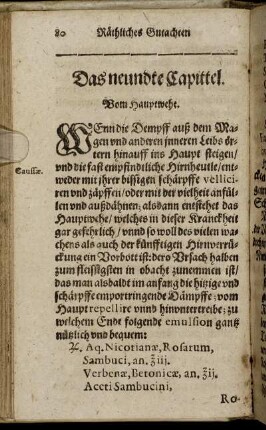 80 Räthliches Gutachten
Das neundte Capittel.
Vom Hauptwehe.
WEnn die Dempff auß dem Ma-
gen vnd anderen inneren Leibs ör-
tern hinauff ins Haupt steigen/
Caussæ.
vnd die fast empfindtliche Hirnheutle/ ent-
weder mit jhrer bissigen schärpffe vellici-
ren vnd zäpffen/ oder mit der vielheit anfül-
len vnd außdähnen; alsdann entstehet das
Hauptwehe/ welches in dieser Kranckheit
gar gefehrlich/ vnnd so woll des vielen wa-
chens als auch der künfftigen Hirnverrü-
ckung ein Vorbott ist: ders Vrsach halben
zum fleissigsten in obacht zunemmen ist/
das man alsbaldt im anfang die hitzige vnd
schärpffe emportringende Dämpffe: vom
Haupt repellire vnnd hinwntertreibe; zu
welchem Ende folgende emulsion gantz
nützlich vnd bequem:
℞. Aq. Nicotianæ, Rosarum,
Sambuci, an. ℥iij.
Verbenæ, Betonicæ, an. ℥ij.
Aceti Sambucini,
Ro-